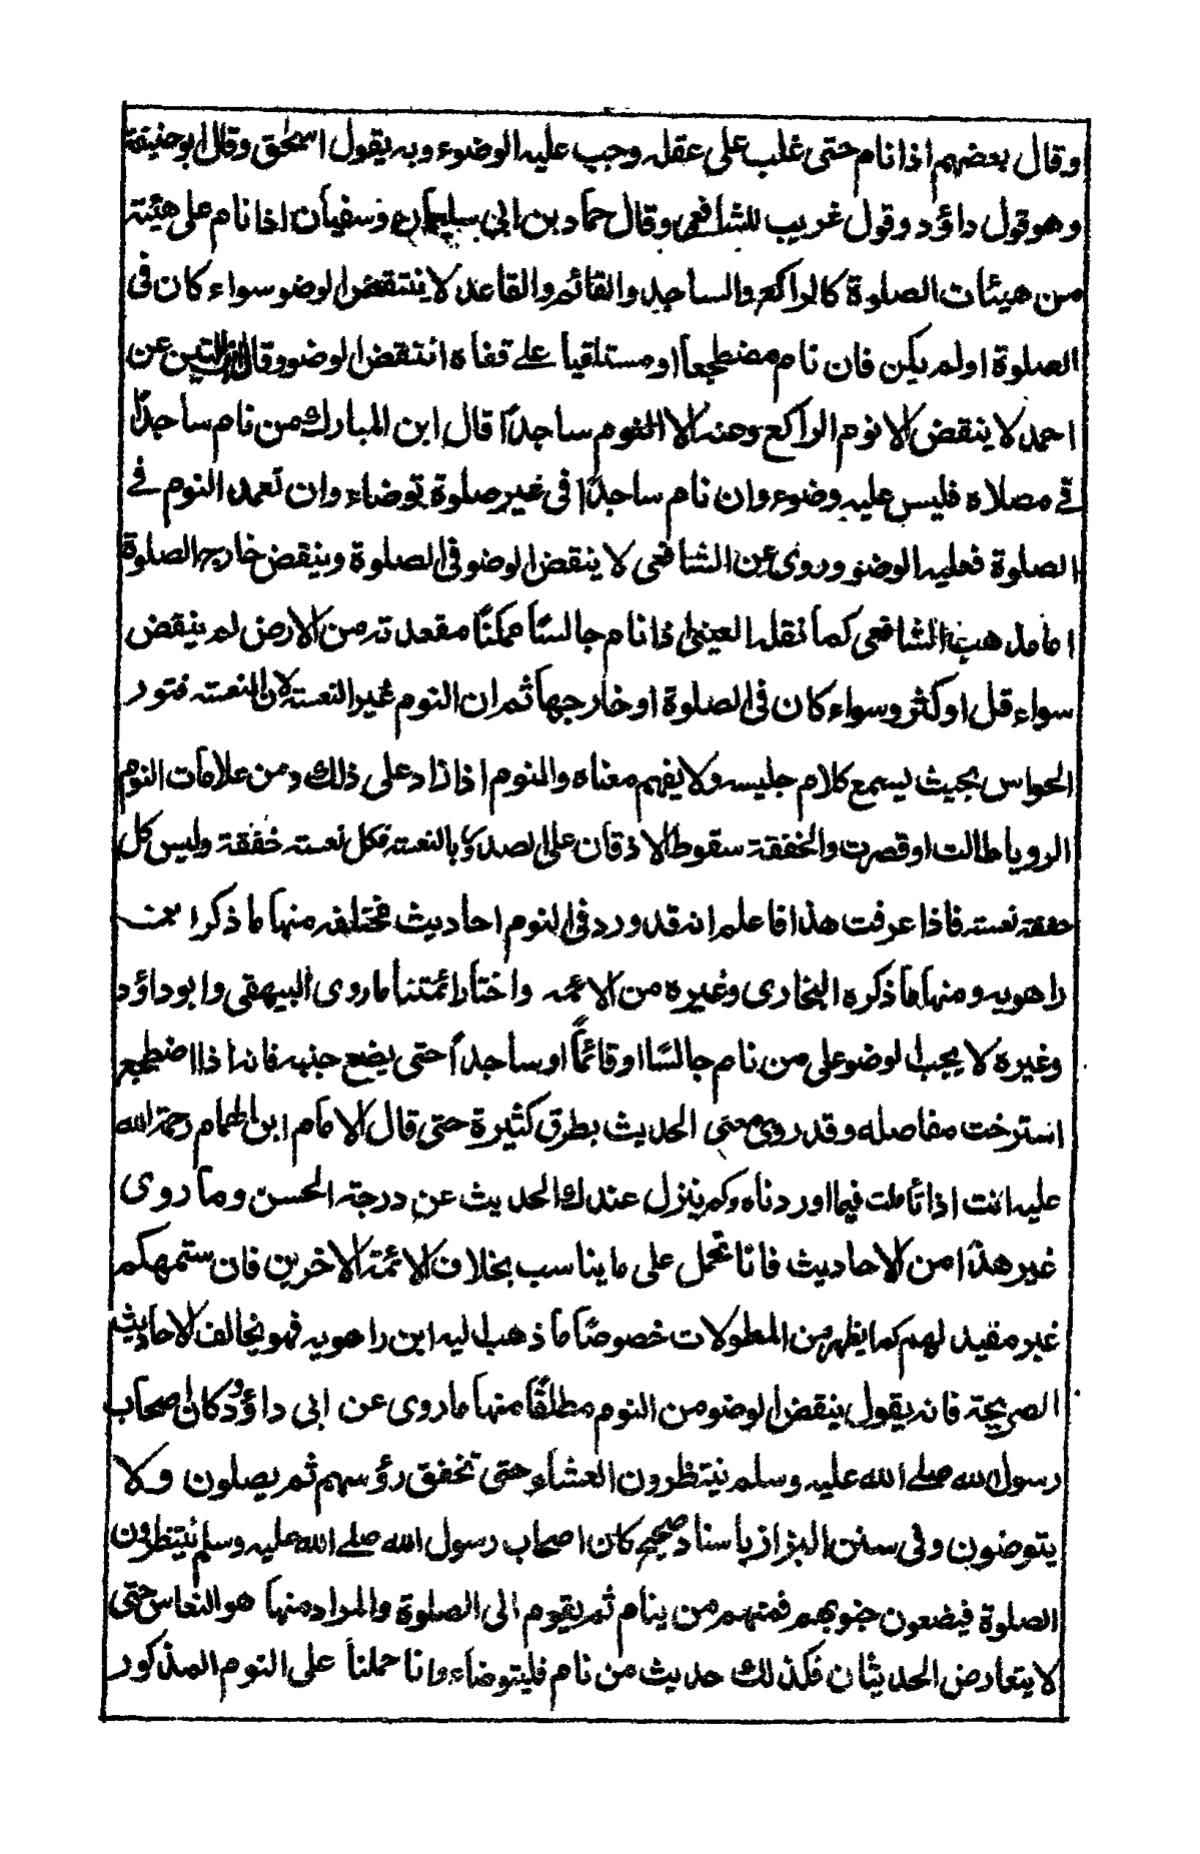 وقال بعضهم اذا نام حتى غلب على عقله وجب عليه الوضوء وبه يقول اسحٰق وقال ابوحنيفة
وهو قول داؤد وقول غريب للشافعى وقال حماد بن ابى سليمان وسفيان اذا نام على هيئة
من هيئات الصلوة كالراكع والساجد والقائم والقاعد لا ينتقض الوضو سواء كان فى
الصلوة اولم يكن فان نام مضطجعا او مستلقيا على قفاه انتقض الوضوو وقال ابن التين عن
احمد لا ينقض الا نوم الراكع وعنه الا النوم ساجدًا قال ابن المبارك من نام ساجدًا
فى مصلاه فليس عليه وضوء وان نام ساجدًا فى غير صلوة توضاء وان تعمد النوم فى
الصلوة فعليه الوضو وروى عن الشافعى لا ينقض الوضو فى الصلوة وينقض خارج الصلوة
اما مذهب الشافعى كما نقله العينى اذا نام جالسًا ممكنًا مقعدته من الارض لم ينقض
سواء قل او كثر وسواء كان فى الصلوة او خارجها ثم ان النوم غير النعسة لان النعسة فتور
الحواس بحيث يسمع كلام جليسه ولا يفهم معناه والنوم اذا زاد على ذلك ومن علامات النوم
الرويا طالت او قصرت والخفقة سقوط الاذقان على الصدر بالنعسة فكل نعسة خفقة وليس كل
خفقة نعسة فاذا عرفت هذا فاعلم انه قد ورد فى النوم احاديث مختلفه منها ما ذكر
راهويه ومنها ما ذكره البخارى وغيره من الائمه واختار ائمتنا ما روى البيهقى وابوداؤد
وغيره لا يجب الوضو على من نام جالسًا او قائمًا او ساجدًا حتى يضع جنبه فانه اذا اضطجع
استرخت مفاصله وقد روى معنى الحديث بطرق كثيرة حتى قال الامام ابن الهمام رحمة الله
عليه انت اذا تأملت فيما اوردناه وكم ينزل عندك الحديث عن درجة الحسن وما روى
غير هذا من الاحاديث فانا نحمل على ما يناسب بخلاف الائمة الاخرين فان ستمهكم
غير مفيد لهم كما يظهر من المطولات خصوصًا ما ذهب اليه ابن راهويه فهو يخالف الاحاديث
الصريحة فانه يقول ينقض الوضو من النوم مطلقًا منها ما روى عن ابى داؤد كان اصحاب
رسول الله صلى الله عليه وسلم ينتظرون العشاء حتى تخفق رؤسهم ثم يصلون ولا
يتوضون وفى سنن البزاز باسناد صحيح كان اصحاب رسول الله صلى الله عليه وسلم ينتظرون
الصلوة فيضعون جنوبهم فمنهم من ينام ثم يقوم الى الصلوة والمراد منها هو النعاس حتى
لا يتعارض الحديثان فكذلك حديث من نام فليتوضاء وانا حملنا على النوم المذكور